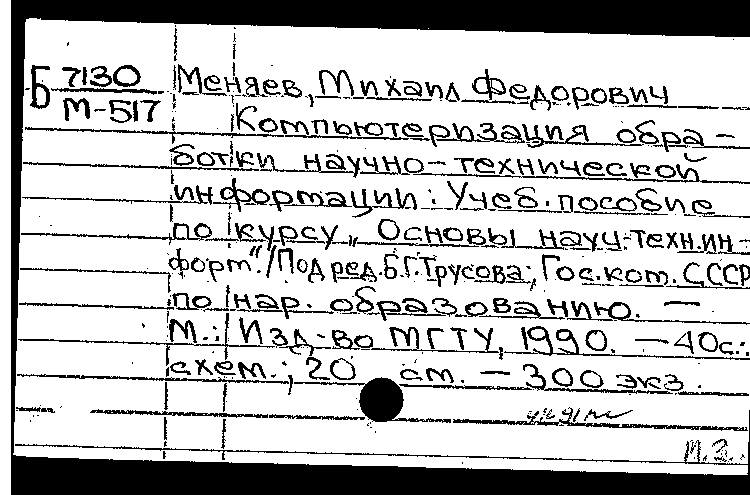 Б 7130 Меняев, Михаил Федорович
М-517 Компьютеризация обра-
ботки научно-технической
информации: Учеб. пособие
по курсу „Основы науч.-техн.ин-
форм."/Под ред. Б.Г.Трусова; Гос.ком. СССР
по нар. образованию. —
М.: Изд-во МГТУ, 1990. — 40с.:
схем.; 20 см. — 300 экз.
М.З.